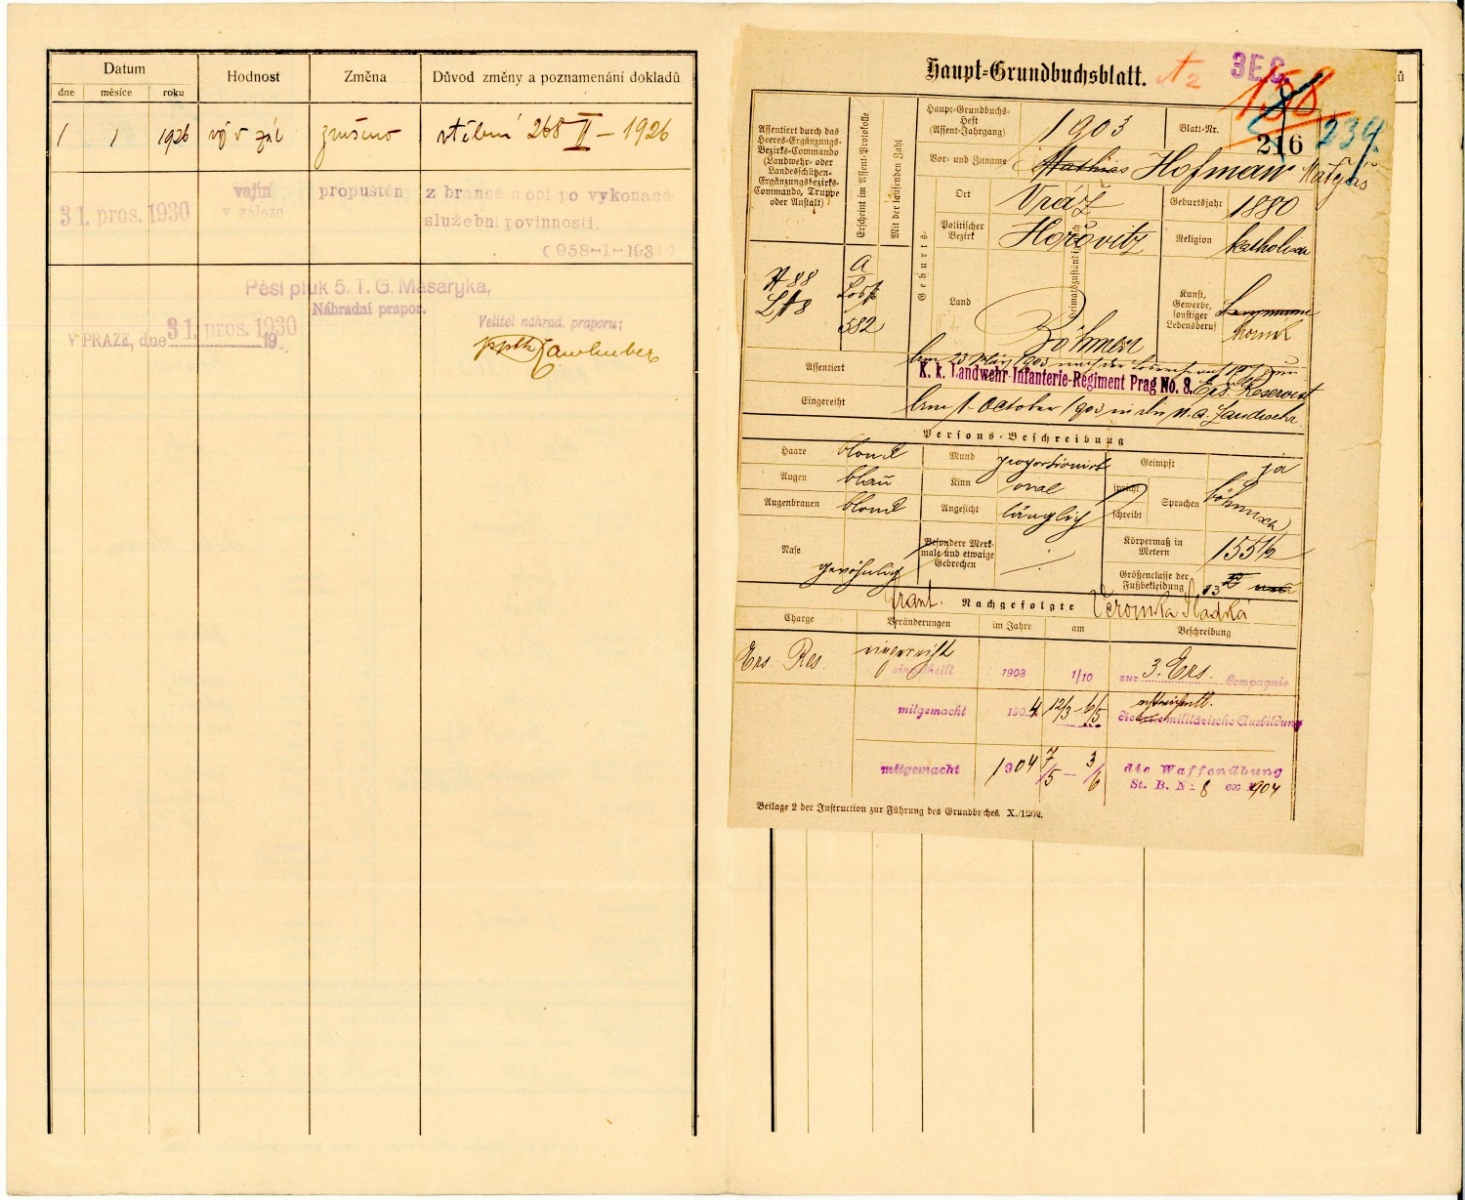 Datum
Hodnost
Změna
Důvod změny a poznamenání dokladů
dne měsíce roku
1 1 1926 zrušeno 268 II – 1926
31. pros. 1930 vojín v záloze propuštěn z branné moci po vykonané
služební povinnosti.
(958-I-1931)
Pěší pluk 5. T. G. Masaryka,
Náhradní prapor.
V PRAZE, dne 31. pros. 1930 19
Velitel náhrad. praporu:
Haupt-Grundbuchsblatt.
A2
3EC.
158
234
216
Assentiert durch das
Heeres-Ergänzungs-
Bezirks-Commando
(Landwehr- oder
Landesschützen-
Ergänzungsbezirks-
Commando, Truppe
oder Anstalt)
Erscheint im Assent-Protokolle
Mit der laufenden Zahl
Haupt-Grundbuchs-
Heft
(Assent-Jahrgang)
1903
Blatt-Nr.
Vor- und Zuname
Mathias Hofman Matyáš
Geburts-
Heimatszuständigkeit
Ort
Vráž
Geburtsjahr
1880
Politischer
Bezirk
Hořovitz
Religion
katholisch
Land
Böhmen
Kunst,
Gewerbe,
sonstiger
Lebensberuf
A
582
Assentiert
am 23 März 1903
K. k. Landwehr-Infanterie-Regiment Prag No. 8.
Ers. Reservist
Eingereiht
am 1. October 1903 in die n. a. Landwehr.
Persons-Beschreibung
Haare blond
Mund proportionirt
Geimpft ja
Augen blau
Kinn oval
spricht
schreibt
Sprachen böhmisch
Augenbrauen blond
Angesicht länglich
Nase
gewöhnlich
Besondere Merk-
male und etwaige
Gebrechen
Körpermaß in
Metern
155½
Größenclasse der
Fußbekleidung
13
Nachgefolgte
Veronika Sladká
Charge
Veränderungen
im Jahre
am
Beschreibung
Ers. Res. eingereiht
eingetheilt 1903 1/10 zur 3. Ers. Compagnie
mitgemacht 1904 12/3 – 6/5 die militärische Ausbildung
mitgemacht 1904 7/5 – 3/6 die Waffenübung
St. B. N= 8 ex 1904
Beilage 2 der Instruction zur Führung des Grundbuches. X./1902.